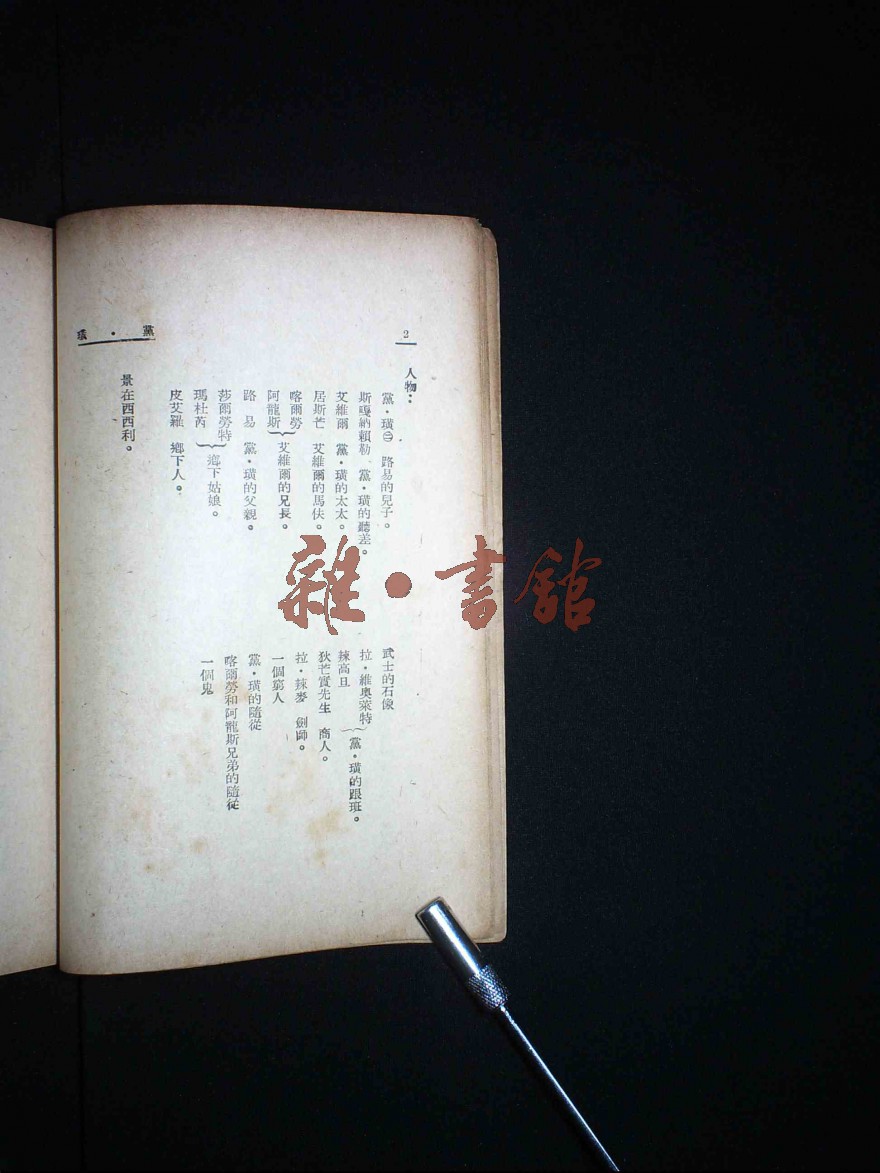 2
人物：
黨・璜㊁　路易的兒子。
斯嘎納賴勒　黨・璜的聽差。
艾維爾　黨・璜的太太。
居斯芒　艾維爾的馬伕。
喀爾勞
阿龍斯
艾維爾的兄長。
路　易　黨・璜的父親。
莎爾勞特
瑪杜芮
鄉下姑娘。
皮艾羅　鄉下人。
武士的石像
拉・維奧萊特
辣高旦
黨・璜的跟班。
狄芒實先生　商人。
拉・辣麥　劍師。
一個窮人
黨・璜的隨從
喀爾勞和阿龍斯兄弟的隨從
一個鬼
景在西西利。
黨・璜
雜・書館